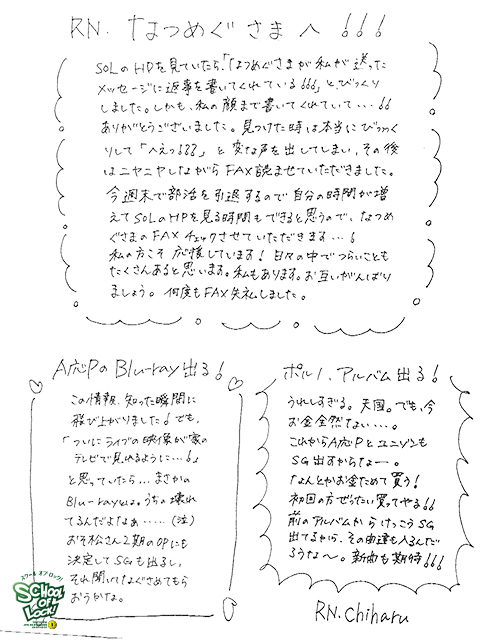 RN. なつめぐさまへ!!!
SOLのHPを見ていたら、「なつめぐさまが私が送った
メッセージに返事を書いてくれている!!!」とびっくり
しました。しかも、私の顔まで書いてくれていて…!!
ありがとうございました。見つけた時は本当にびっく
りして「へえっ???」と変な声を出してしまい、その後
はニヤニヤしながらFAX読ませていただきました。
今週末で部活を引退するので自分の時間が増
えてSOLのHPを見る時間もできると思うので、なつめ
ぐさまのFAXチェックさせていただきます…!
私の方こそ応援しています!日々の中でつらいことも
たくさんあると思います。私もあります。お互いがんばり
ましょう。何度もFAX失礼しました。
A応PのBlu-ray出る!
この情報、知った瞬間に
飛び上がりました!でも、
「ついにライブの映像が家の
テレビで見れるように…!」
と思っていたら…まさかの
Blu-rayとは。うちの壊れ
てるんだよなぁ……(泣)
おそ松さん2期のOPにも
決定してSGも出るし、
それ聞いてなぐさめてもら
おうかな。
ポルノ、アルバム出る!
うれしすぎる。天国。でも、今
お金全然ない…。
これからA応Pとユニゾンも
SG出すからなー。
なんとかお金ためて買う!
初回の方ぜったい買ってやる!!
前のアルバムからけっこうSG
出てるから、その曲達も入るんだ
ろうな〜。新曲も期待!!!
RN. Chiharu
スクール オブ ロック!
SCHOOL
OF
LOCK!